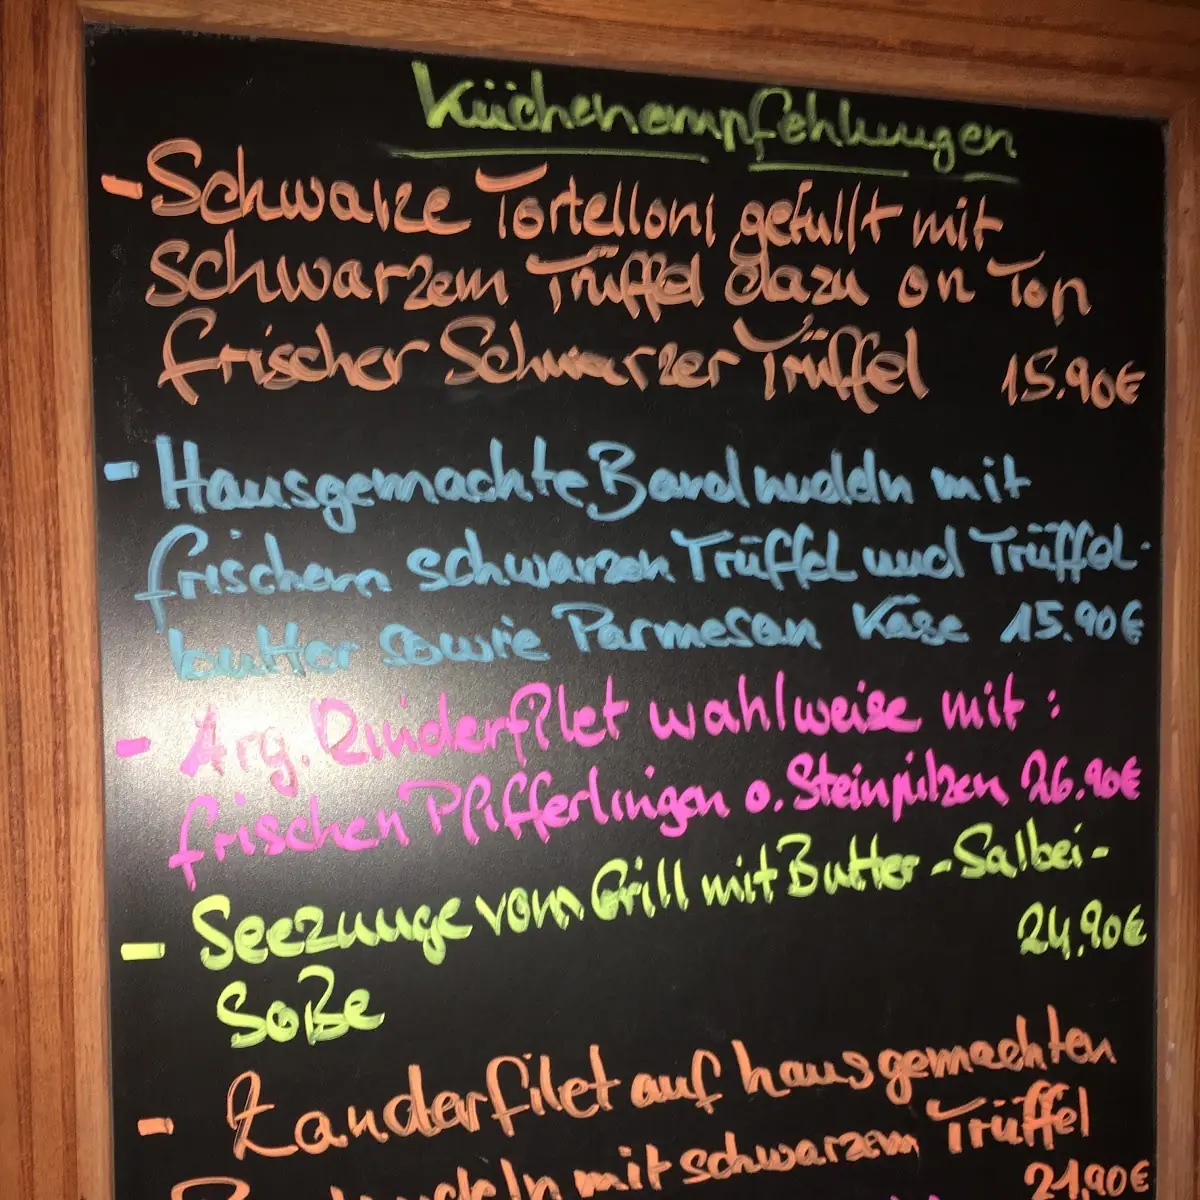 Küchenempfehlungen
- Schwarze Tortelloni gefüllt mit
schwarzem Trüffel dazu on Top
frischer Schwarzer Trüffel 15.90€
- Hausgemachte Bandnudeln mit
frischem schwarzen Trüffel und Trüffel-
butter sowie Parmesan Käse 15.90€
- Arg. Rinderfilet wahlweise mit:
frischen Pfifferlingen o. Steinpilzen 26.90€
- Seezunge vom Grill mit Butter-Salbei-
24,90€
Soße
- Zanderfilet auf hausgemachten
Bandnudeln mit schwarzem Trüffel
21.90€